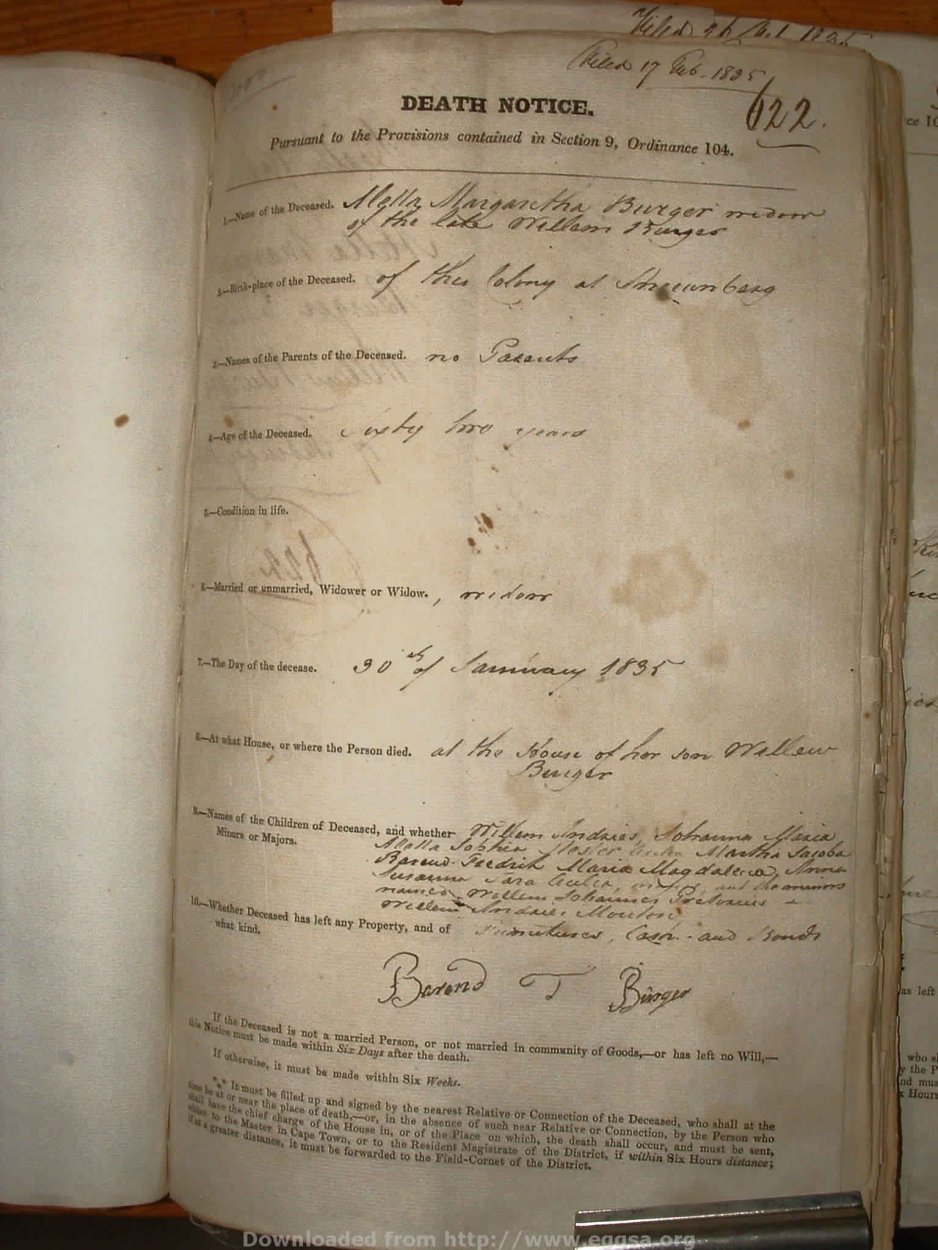 Filed 17 Feb. 1835
622.
DEATH NOTICE.
Pursuant to the Provisions contained in Section 9, Ordinance 104.
1.—Name of the Deceased. Margaretha Burger widow
of the late Willem Burger
2.—Birth-place of the Deceased. of this Colony at
3.—Names of the Parents of the Deceased. no Parents
4.—Age of the Deceased. Sixty two years
5.—Condition in life.
6.—Married or unmarried, Widower or Widow., widow
7.—The Day of the decease. 30th of January 1835
8.—At what House, or where the Person died. at the House of her son Willem
Burger
9.—Names of the Children of Deceased, and whether Willem Andries, Johanna Maria
Minors or Majors. Sophia Hester Martha Jacoba
Barend Fredrik Maria Magdalena, Anna
Susanna Sara and the minors
named Willem Johannes Pretorius
Willem Andries Mouton
10.—Whether Deceased has left any Property, and of
what kind. Furnitures, Cash and Bonds
Barend F Burger
If the Deceased is not a married Person, or not married in community of Goods,—or has left no Will,—
this Notice must be made within Six Days after the death.
If otherwise, it must be made within Six Weeks.
*** It must be filled up and signed by the nearest Relative or Connection of the Deceased, who shall at the
time be at or near the place of death,—or, in the absence of such near Relative or Connection, by the Person who
shall have the chief charge of the House in, or of the Place on which, the death shall occur, and must be sent,
either to the Master in Cape Town, or to the Resident Magistrate of the District, if within Six Hours distance;
if at a greater distance, it must be forwarded to the Field-Cornet of the District.
Downloaded from http://www.eggsa.org